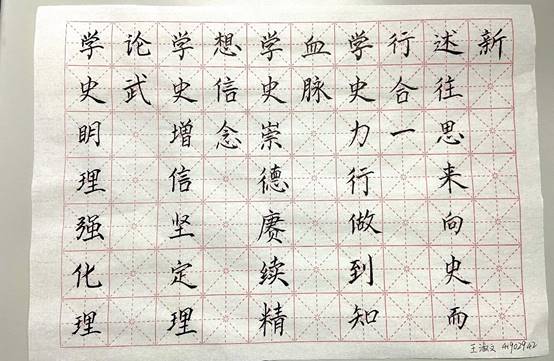 学史明理强化理
论武
学史增信坚定理
想信念
学史崇德赓续精
血脉
学史力行做到知
行合一
述往思来向史而
新
王淑文